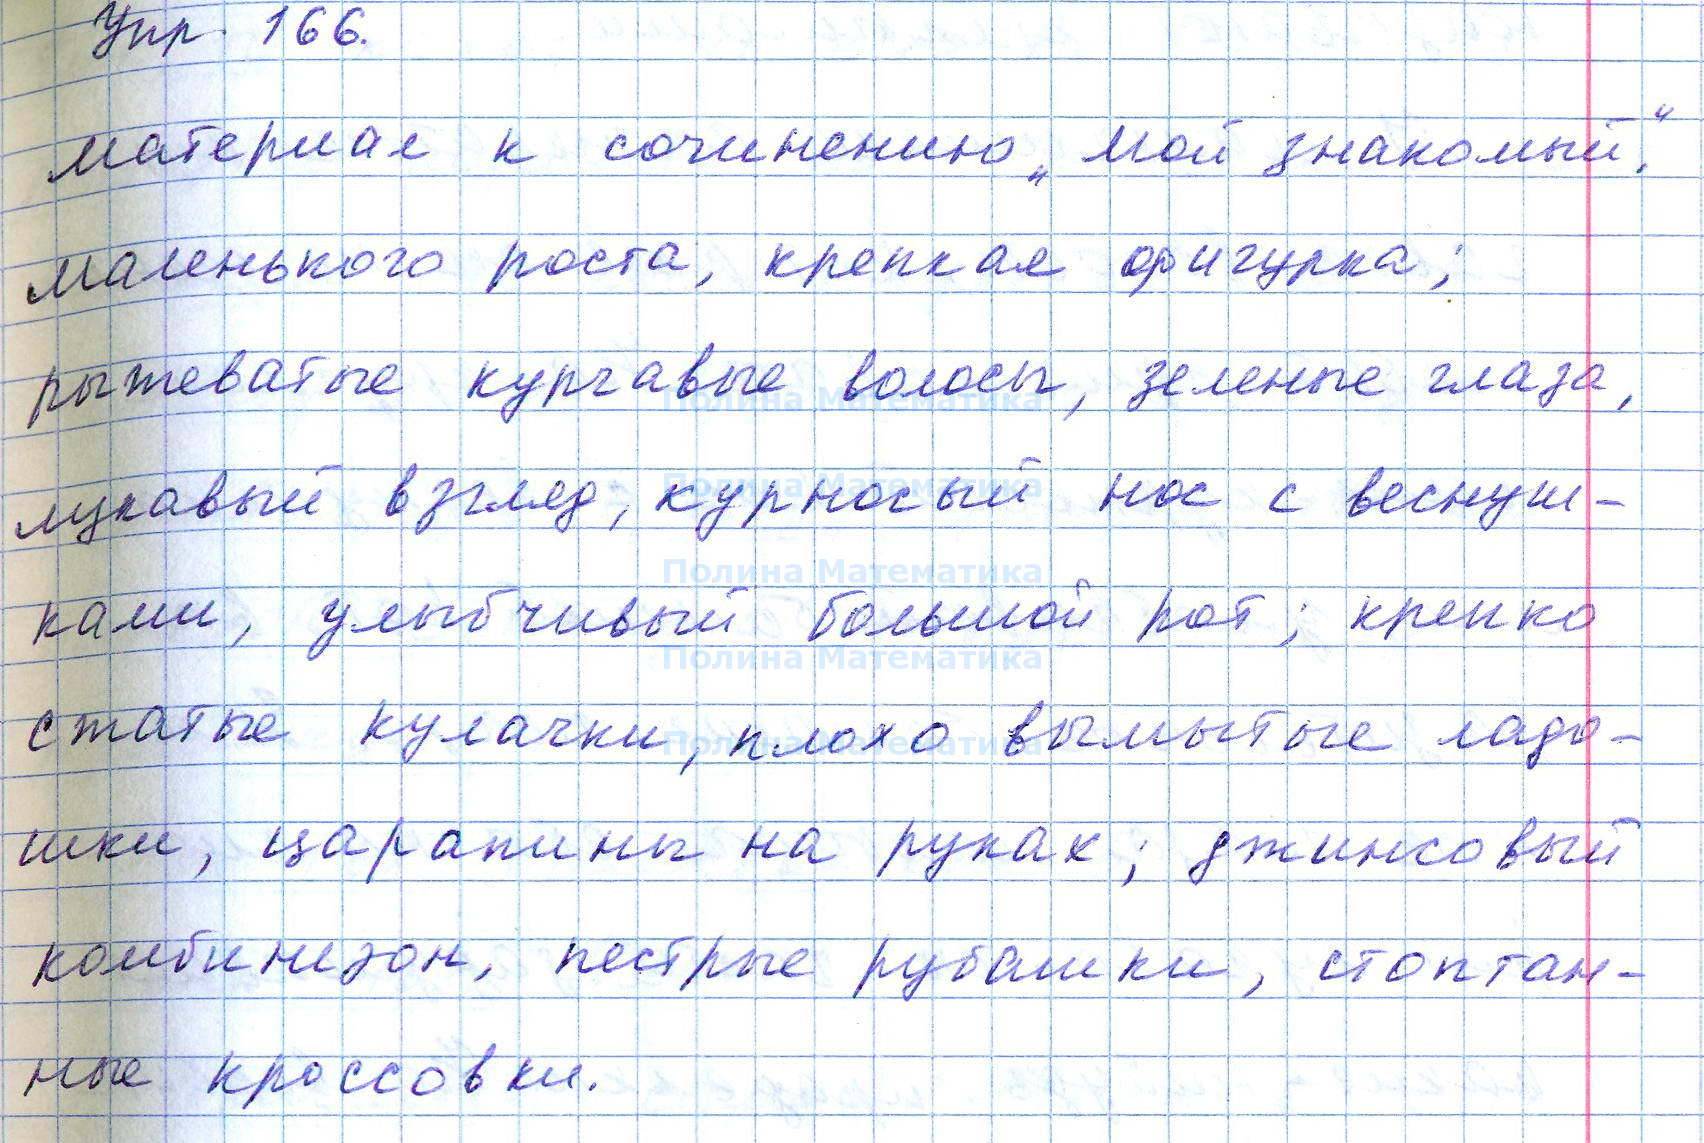 Упр. 166.
Материал к сочинению „Мой знакомый".
Маленького роста, крепкая фигурка;
рыжеватые курчавые волосы, зеленые глаза,
Полина Математика
лукавый взгляд, курносый нос с веснуш-
Полина Математика
Полина Математика
ками, улыбчивый большой рот; крепко
Полина Математика
сжатые кулачки, плохо вымытые ладо-
Полина Математика
шки, царапины на руках; джинсовый
комбинезон, пестрые рубашки, стоптан-
ные кроссовки.